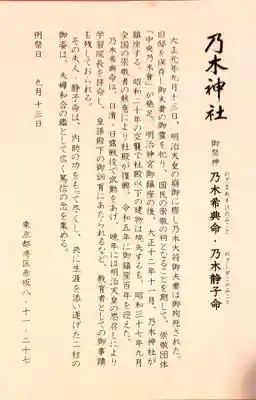 乃木神社
御祭神
乃木希典命・乃木静子命
のぎまれすけのみこと
のぎしずこのみこと
大正元年九月十三日、明治天皇の崩御に際し乃木大将御夫妻は御殉死された。
旧邸を保存し御夫妻の御霊を祀り、国民の崇敬の祠となることを願して、崇敬団体
「中央乃木會」が発足。明治神宮御鎮座の後、大正十二年十一月、乃木神社が
鎮座する。昭和二十年の空襲で社殿以下の建物は焼失するも、昭和三十七年九月
全国の崇敬者の熱意により社殿が復興。令和五年に御鎮座百年を迎えた。
乃木希典命は、日清・日露戦役で武勲をあげ、晩年には明治天皇の思召しにより
学習院長を拝命し、皇孫殿下の御訓育にあたられるなど、教育者としての御事蹟
も残しておられる。
その夫人・静子命は、内助の功をもって尽くし、共に生涯を添い遂げた二柱の
御姿は、夫婦和合の鑑として広く篤信の念を集める。
例祭日 九月十三日
東京都港区赤坂八・十一・二十七